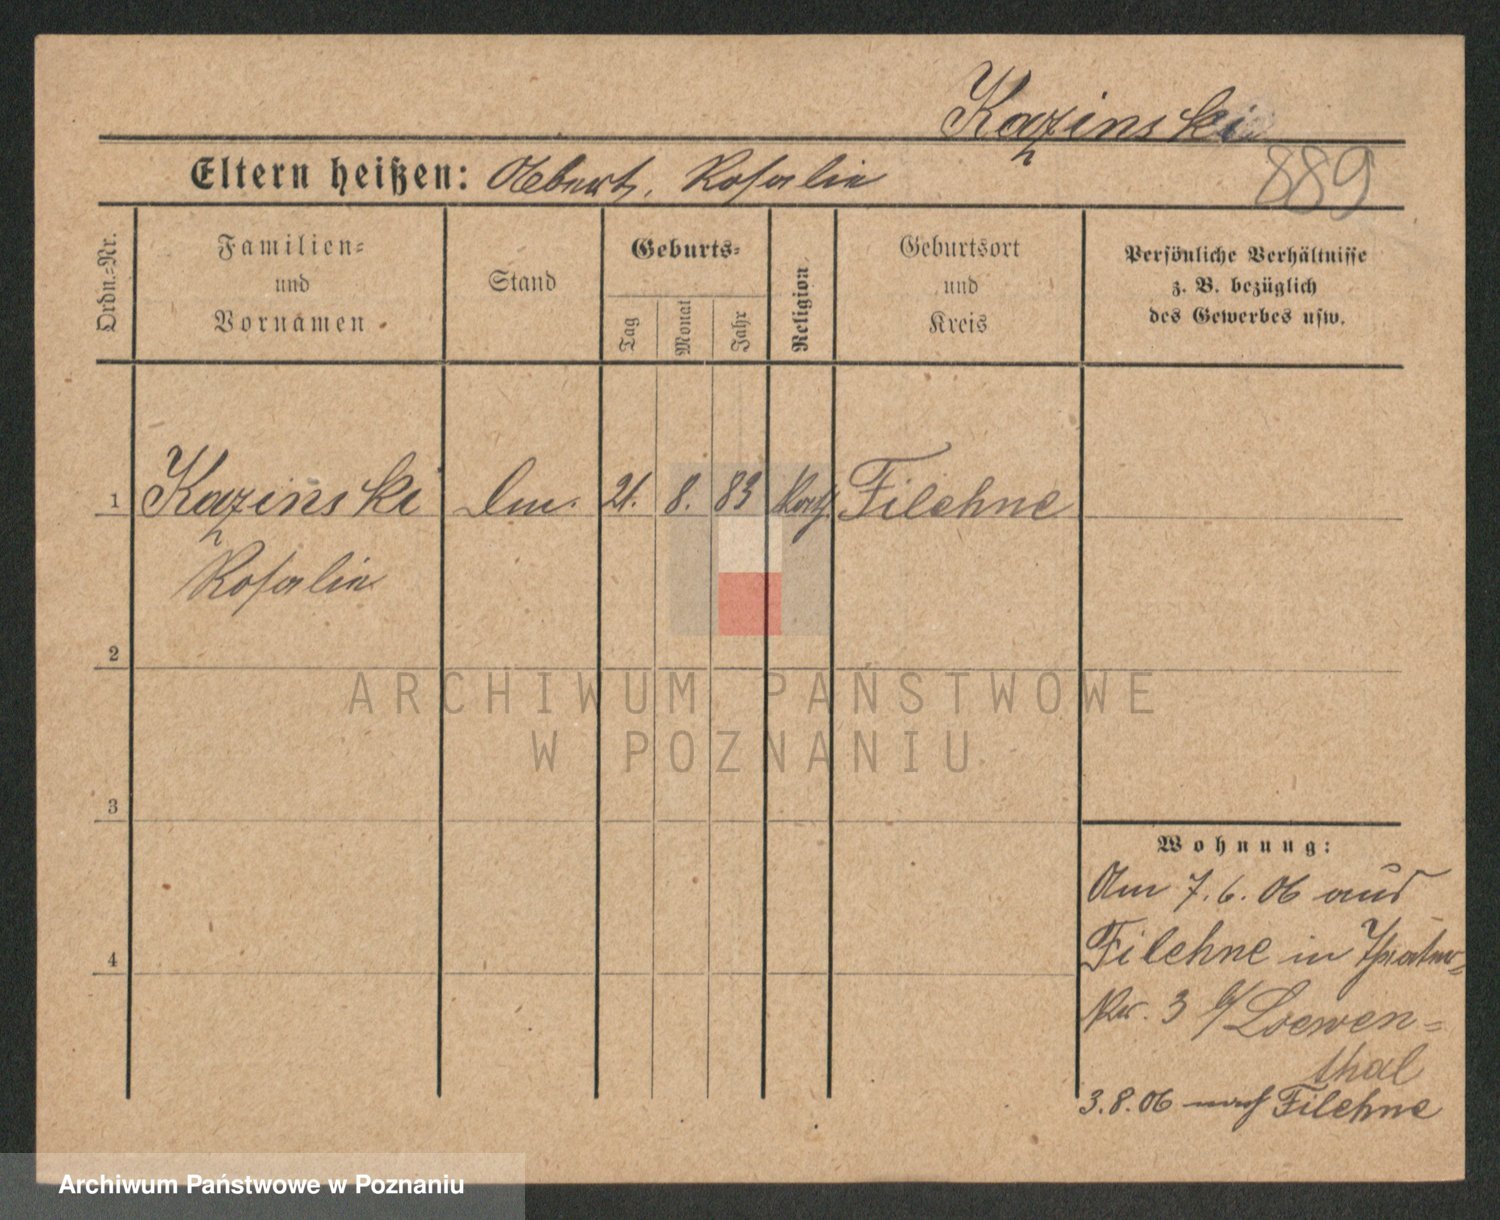 Kazinski
889
Eltern heißen: Albert, Rosalie
Ordn.-Nr.
Familien-
und
Vornamen
Stand
Geburts-
Tag
Monat
Jahr
Religion
Geburtsort
und
Kreis
Persönliche Verhältnisse
z. B. bezüglich
des Gewerbes usw.
1 Kazinski 21. 8. 83 kath Filehne
Rosalie
2
ARCHIWUM PAŃSTWOWE
W POZNANIU
3
4
Wohnung:
Am 7. 6. 06 aus
Filehne in Theater-
3 b/ Loewen-
thal
3. 8. 06 nach Filehne
Archiwum Państwowe w Poznaniu